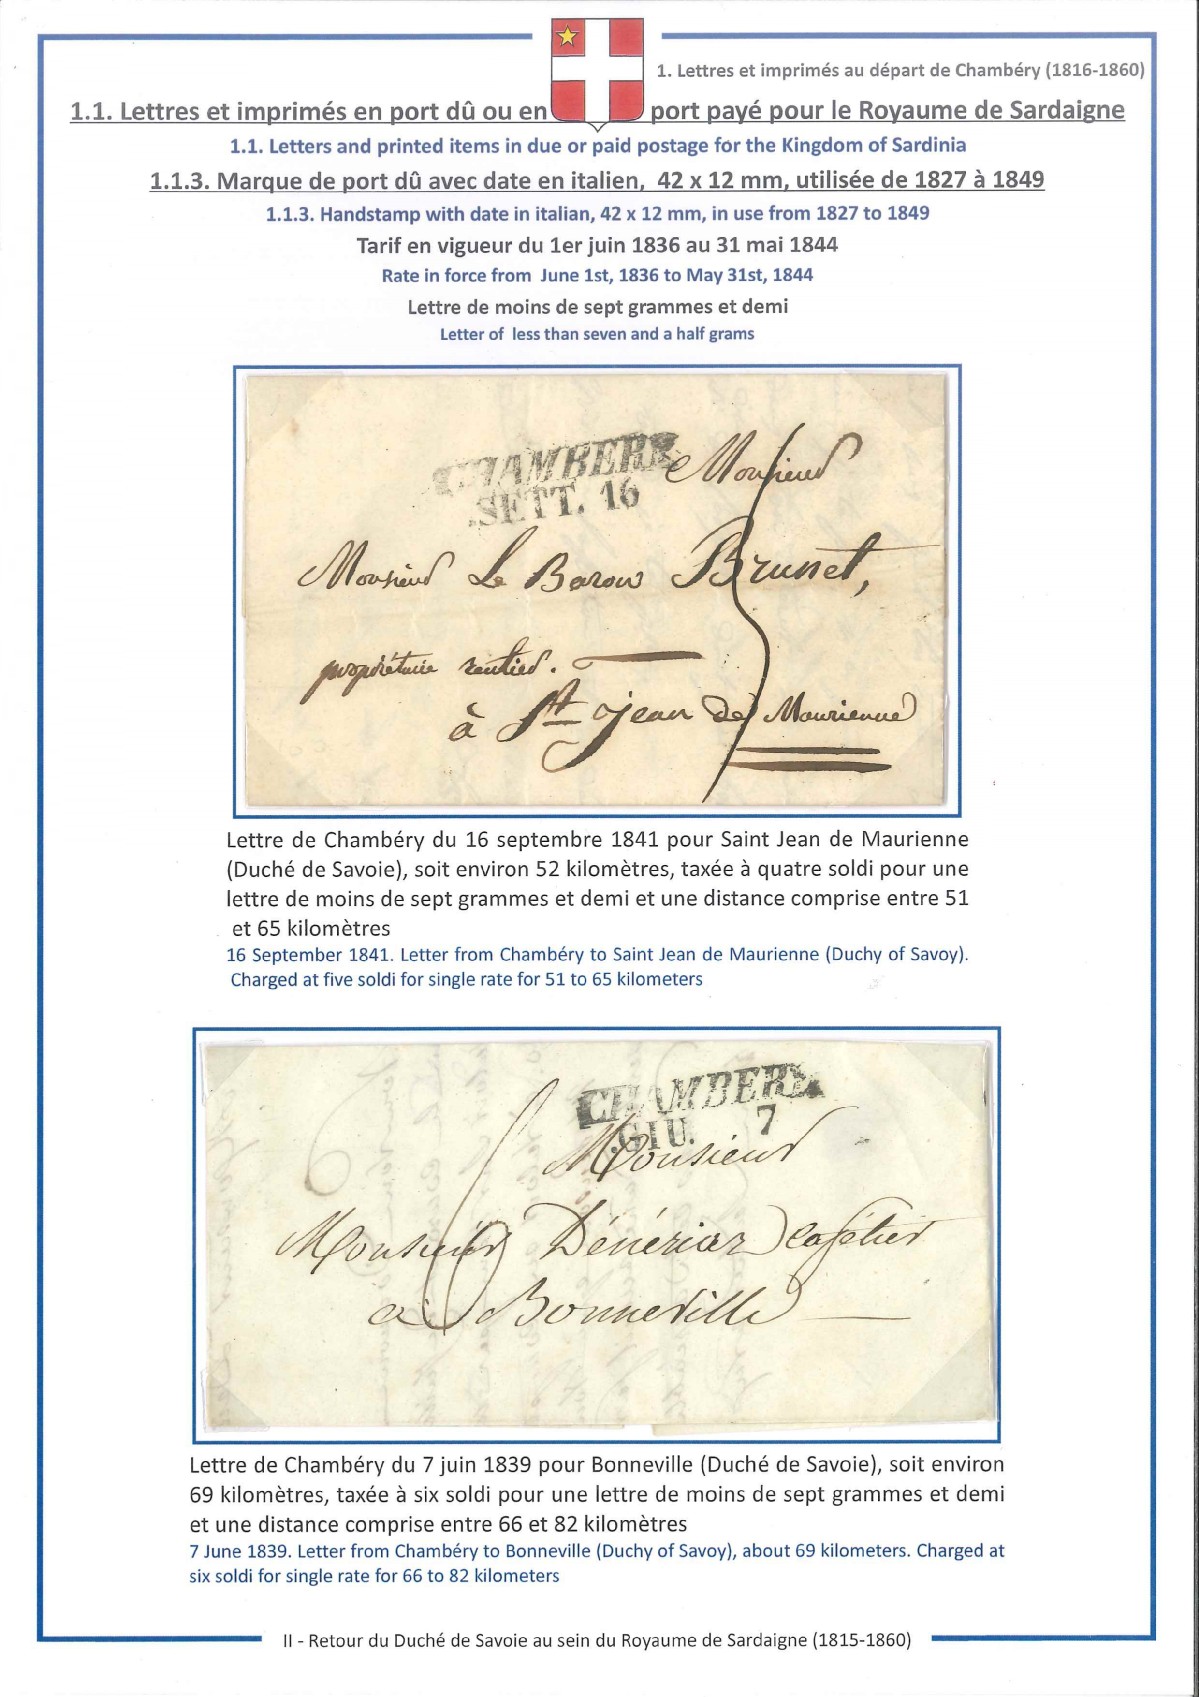 1. Lettres et imprimés au départ de Chambéry (1816-1860)
1.1. Lettres et imprimés en port dû ou en port payé pour le Royaume de Sardaigne
1.1. Letters and printed items in due or paid postage for the Kingdom of Sardinia
1.1.3. Marque de port dû avec date en italien, 42 x 12 mm, utilisée de 1827 à 1849
1.1.3. Handstamp with date in italian, 42 x 12 mm, in use from 1827 to 1849
Tarif en vigueur du 1er juin 1836 au 31 mai 1844
Rate in force from June 1st, 1836 to May 31st, 1844
Lettre de moins de sept grammes et demi
Letter of less than seven and a half grams
CHAMBERY
SETT. 16
Monsieur
Monsieur Le Baron Brunet,
propriétaire rentier.
à St jean de Maurienne
5
Lettre de Chambéry du 16 septembre 1841 pour Saint Jean de Maurienne
(Duché de Savoie), soit environ 52 kilomètres, taxée à quatre soldi pour une
lettre de moins de sept grammes et demi et une distance comprise entre 51
et 65 kilomètres
16 September 1841. Letter from Chambéry to Saint Jean de Maurienne (Duchy of Savoy).
Charged at five soldi for single rate for 51 to 65 kilometers
CHAMBERY
GIU. 7
Monsieur
Monsieur Dénériaz cafetier
à Bonneville
6
Lettre de Chambéry du 7 juin 1839 pour Bonneville (Duché de Savoie), soit environ
69 kilomètres, taxée à six soldi pour une lettre de moins de sept grammes et demi
et une distance comprise entre 66 et 82 kilomètres
7 June 1839. Letter from Chambéry to Bonneville (Duchy of Savoy), about 69 kilometers. Charged at
six soldi for single rate for 66 to 82 kilometers
II - Retour du Duché de Savoie au sein du Royaume de Sardaigne (1815-1860)